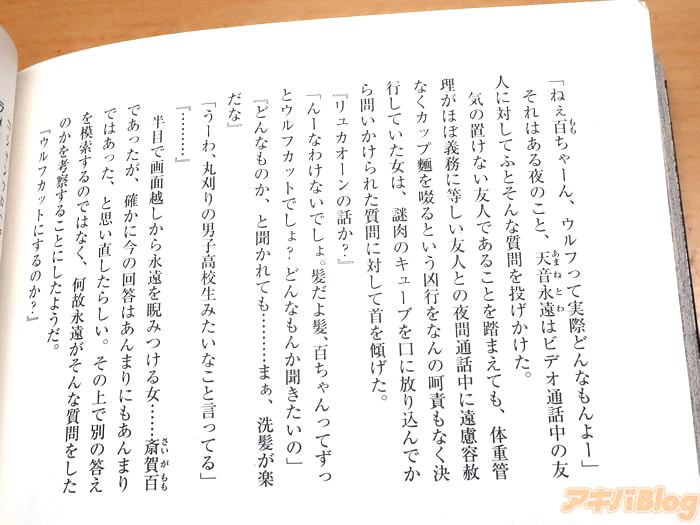 「ねぇ百ちゃーん、ウルフって実際どんなもんよー」
それはある夜のこと、天音永遠はビデオ通話中の友
人に対してふとそんな質問を投げかけた。
気の置けない友人であることを踏まえても、体重管
理がほぼ義務に等しい友人との夜間通話中に遠慮容赦
なくカップ麵を啜るという凶行をなんの呵責もなく決
行していた女は、謎肉のキューブを口に放り込んでか
ら問いかけられた質問に対して首を傾げた。
『リュカオーンの話か?』
「んーなわけないでしょ。髪だよ髪、百ちゃんってずっ
とウルフカットでしょ? どんなもんか聞きたいの」
『どんなものか、と聞かれても………まぁ、洗髪が楽
だな』
「うーわ、丸刈りの男子高校生みたいなこと言ってる」
『………』
半目で画面越しから永遠を睨みつける女……斎賀百
であったが、確かに今の回答はあんまりにもあんまり
ではあった、と思い直したらしい。その上で別の答え
を模索するのではなく、何故永遠がそんな質問をした
のかを考察することにしたようだ。
『ウルフカットにするのか?』
アキバBlog